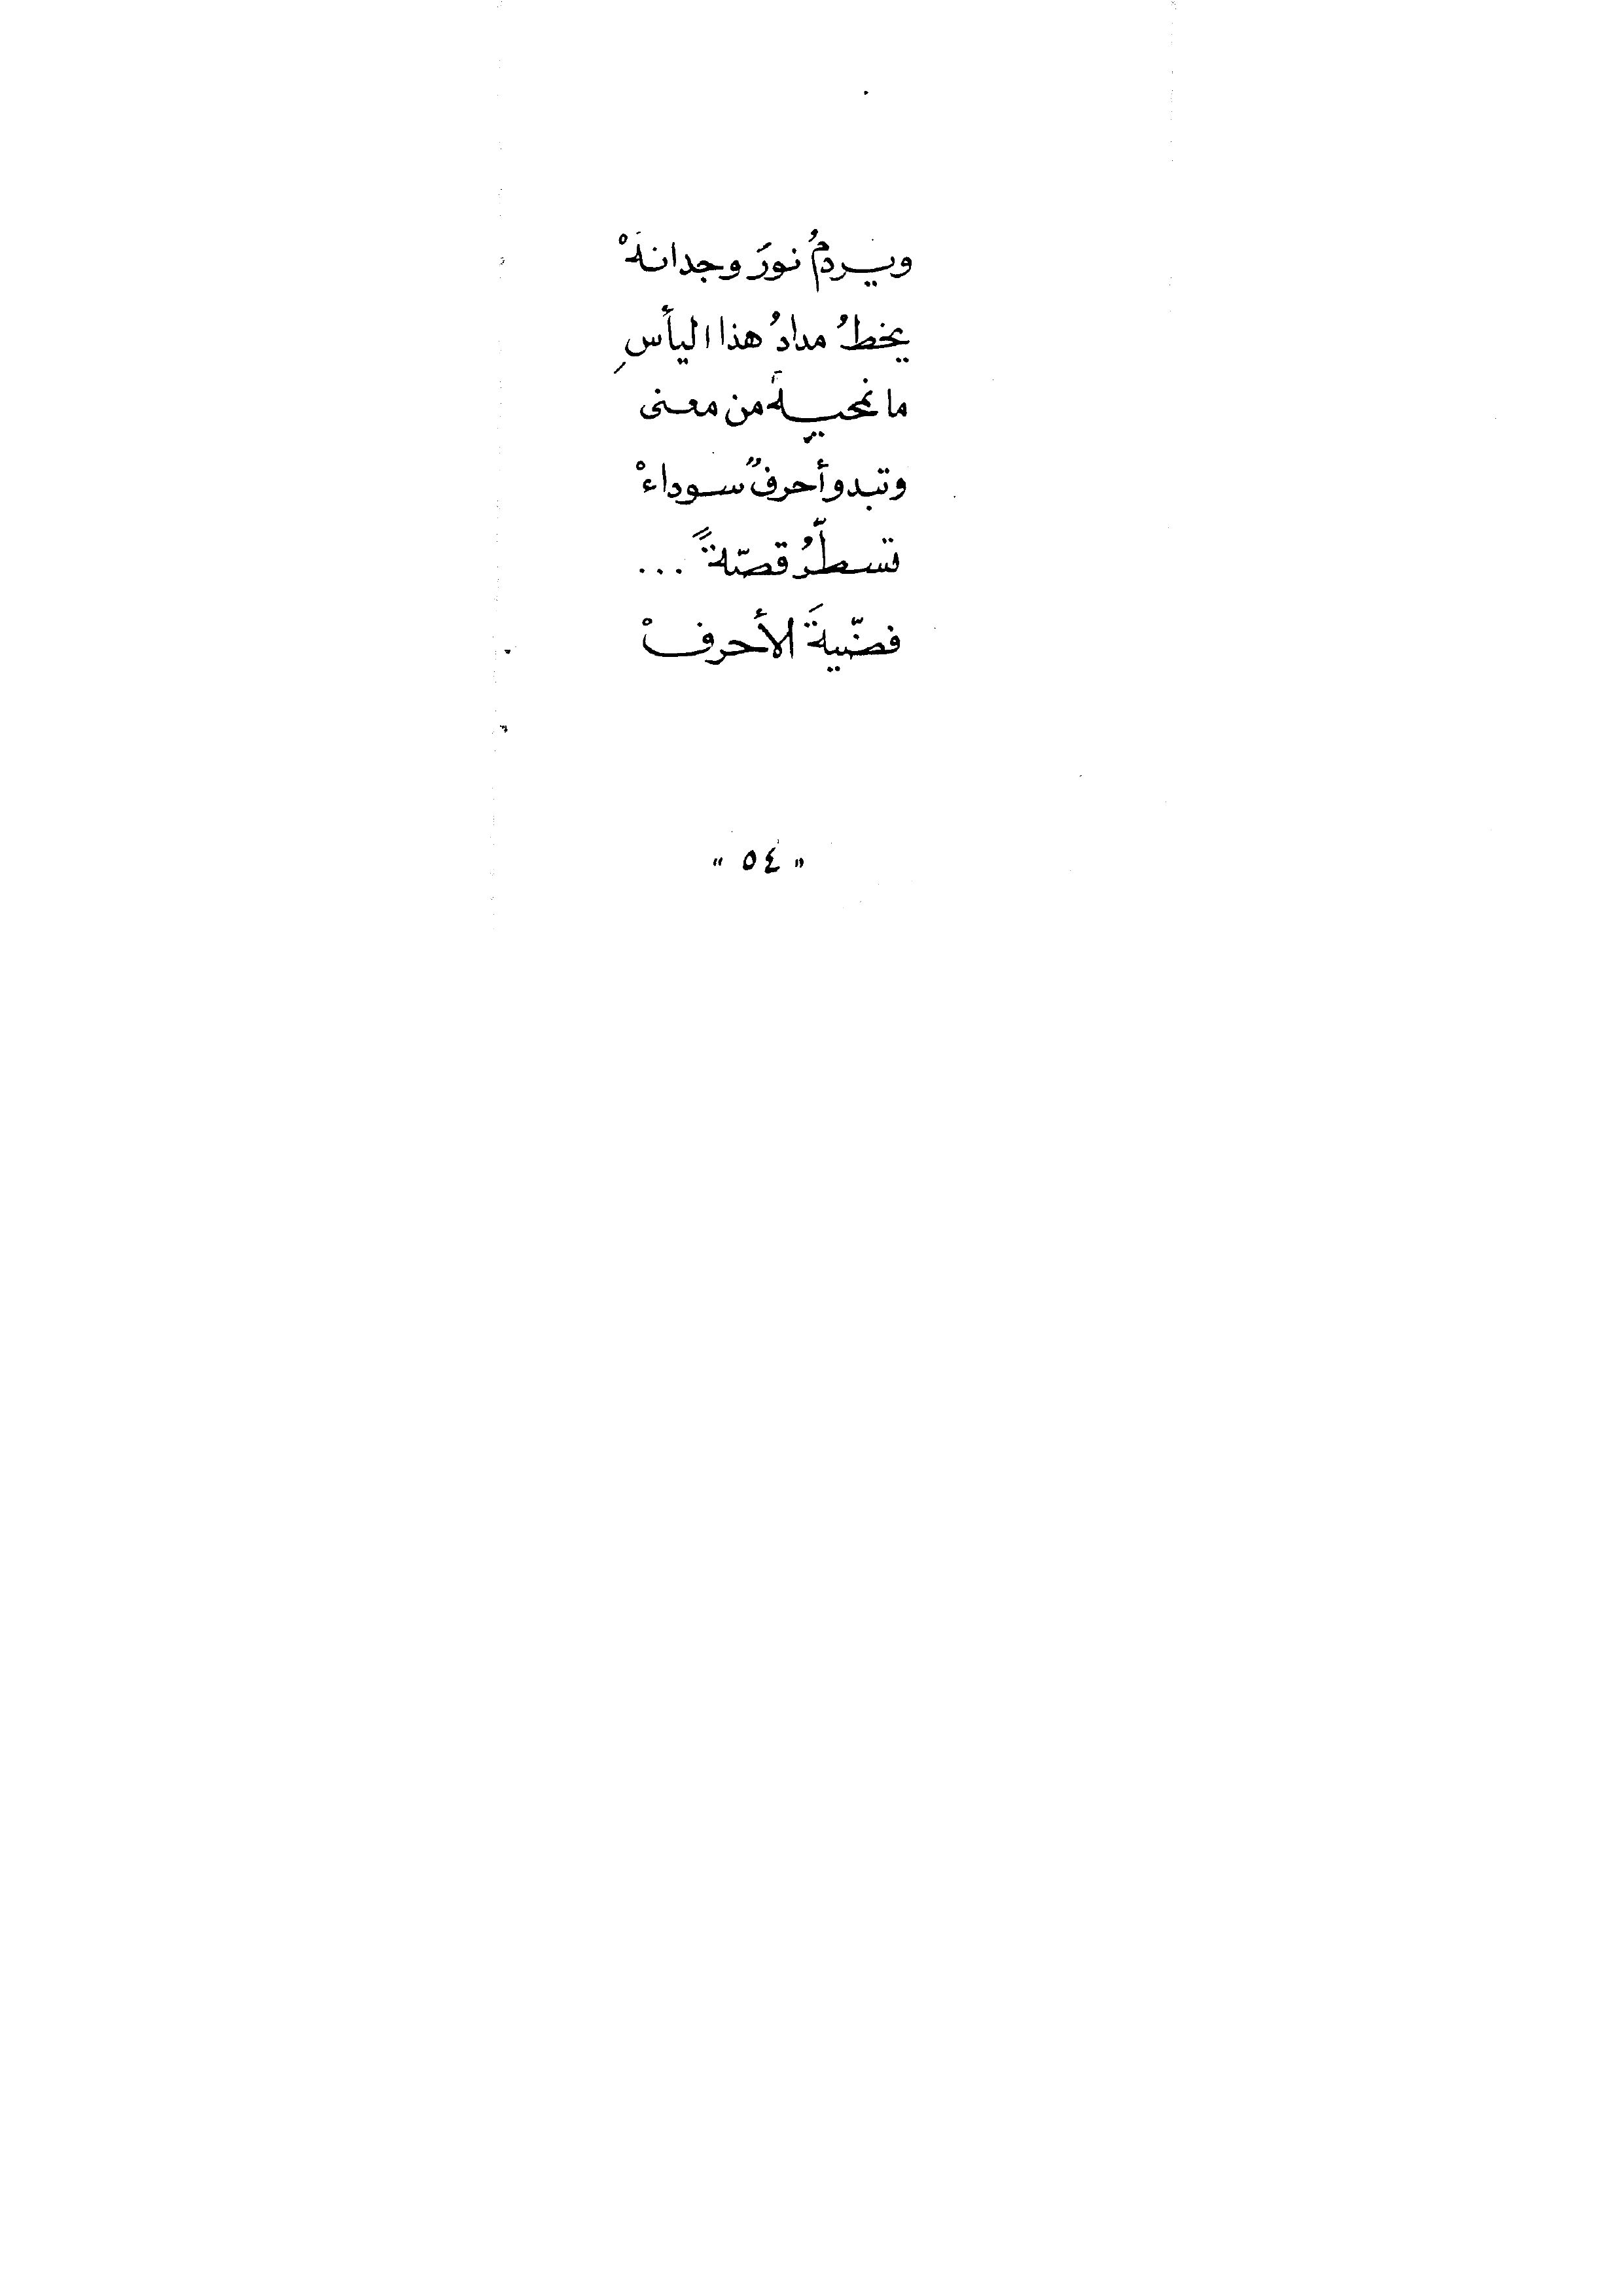 ويردمُ نورَ وجدانهْ
يخطُ مدادُ هذا اليأسِ
ما نحييهَ من معنى
وتبدو أحرفٌ سوداءْ
تسطّرُ قصّةً ...
فضّيةَ الأحرفْ
" ٥٤ "